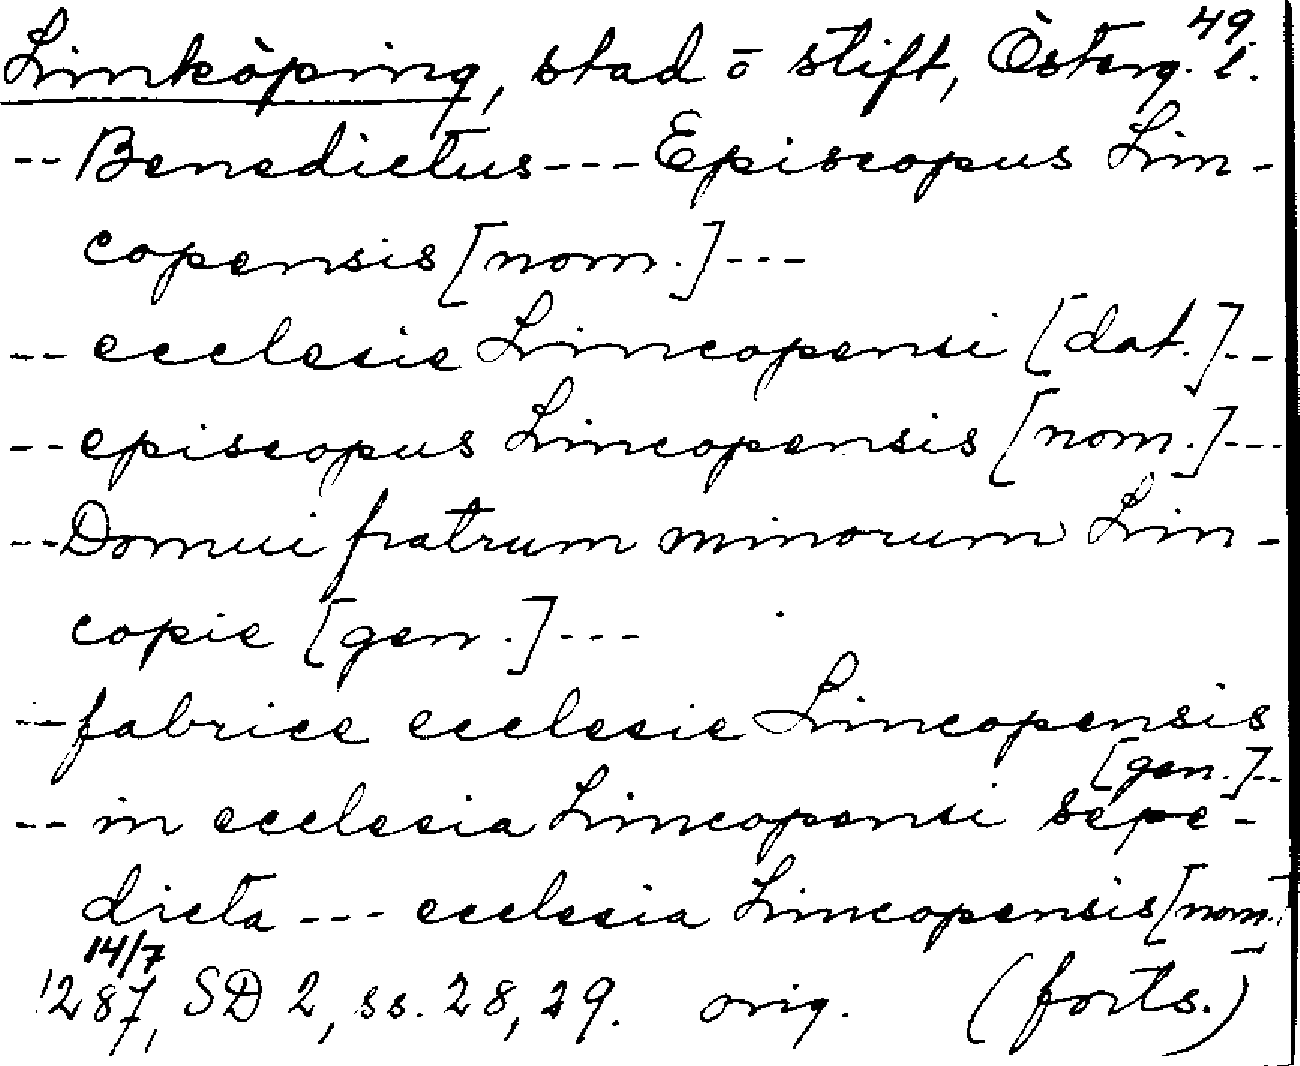 49
Linköping, stad o stift, Österg. l.
-- Benedictus --- Episcopus Lin-
copensis [nom.] ---
-- ecclesie Lincopensi [dat.] --
-- episcopus Lincopensis [nom.] ---
-- Domui fratrum minorum Lin-
copie [gen.] ---
-- fabrice ecclesie Lincopensis
[gen.] --
-- in ecclesia Lincopensi sepe-
dicta --- ecclesia Lincopensis [nom.]
14/7
1287, SD 2, ss. 28, 29. orig. (forts.)